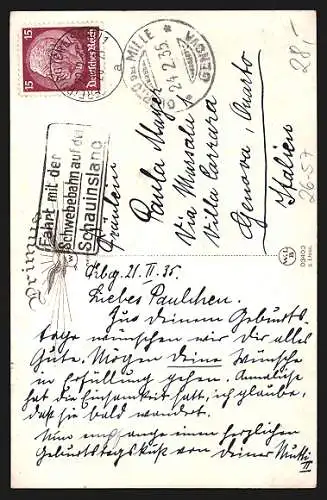 15
15
Deutsches Reich
a
QUARTO DEI MILLE
24.2.35
GENOVA
28,-
26-57
Fahrt mit der
Schwebebahn auf den
Schauinsland
Primus
Fräulein
Paula Mayer
Via Massala
Villa Carrara
Genova, Quarto
Italien
Fbg. 21. II. 35.
Liebes Paulchen.
Zu deinem Geburts
tage wünschen wir dir alles
Gute. Mögen deine Wünsche
in Erfüllung gehen. Anneliese
hat die Einsamkeit satt, ich glaube,
daß sie bald wandert.
Nun empfange einen herzlichen
Geburtstagskuß von deiner Mutti
II